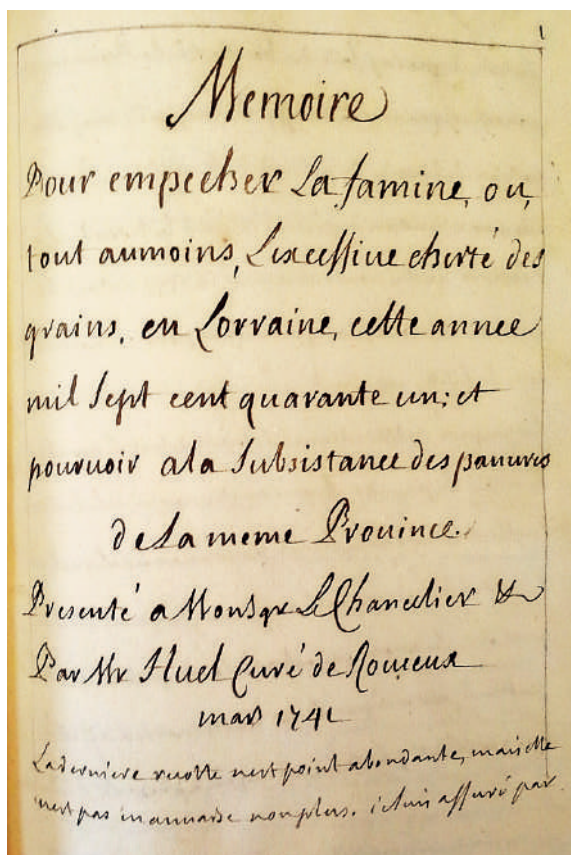 1
Memoire
Pour empecher La famine, ou,
tout aumoins, Lexcessive cherté des
grains, en Lorraine, cette annee
mil Sept cent quarante un; et
pouruoir ala Subsistance des pauures
de La meme Prouince.
Presenté a Monsgr Le Chancelier &
Par Mr Huel Curé de Rouceux
mars 1741
La derniere recolte nest point abondante, mais elle
nest pas mauuaise nonplus. assuré par